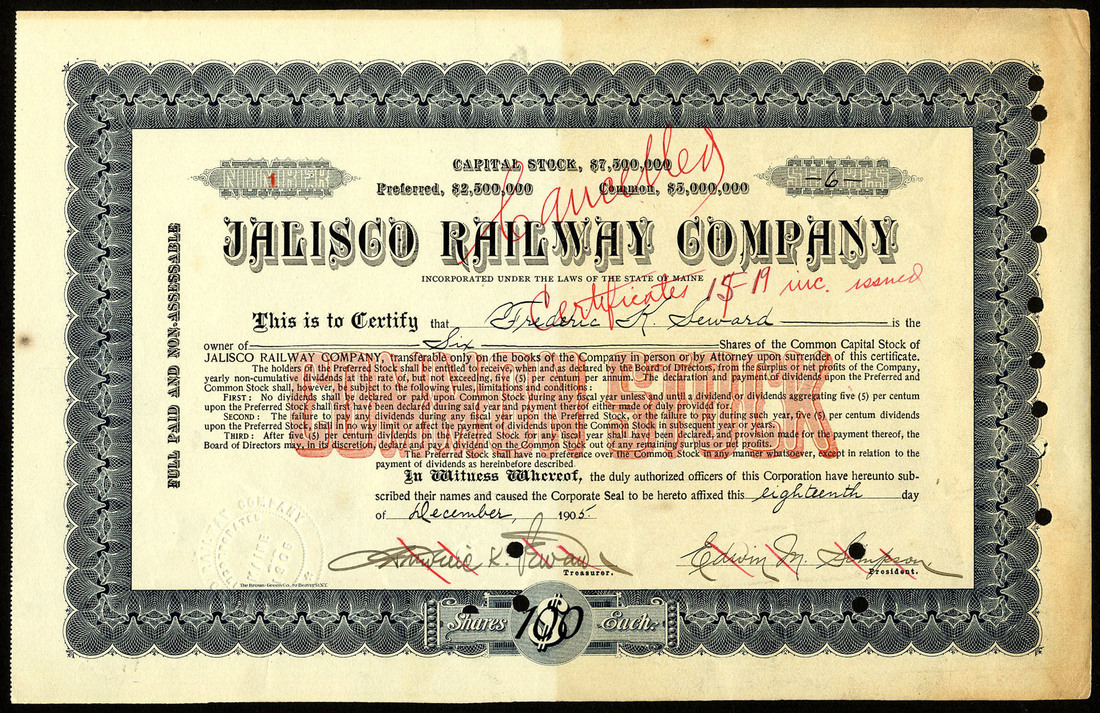 CAPITAL STOCK, $7,500,000
Cancelled
NUMBER
1
Preferred, $2,500,000 Common, $5,000,000
SHARES
-6-
JALISCO RAILWAY COMPANY
INCORPORATED UNDER THE LAWS OF THE STATE OF MAINE
Certificates 15-19 inc. issued
FULL PAID AND NON-ASSESSABLE
This is to Certify that Frederic K. Seward is the
owner of Six Shares of the Common Capital Stock of
JALISCO RAILWAY COMPANY, transferable only on the books of the Company in person or by Attorney upon surrender of this certificate.
The holders of the Preferred Stock shall be entitled to receive, when and as declared by the Board of Directors, from the surplus or net profits of the Company,
yearly non-cumulative dividends at the rate of, but not exceeding, five (5) per centum per annum. The declaration and payment of dividends upon the Preferred and
Common Stock shall, however, be subject to the following rules, limitations and conditions:
FIRST: No dividend shall be declared or paid upon Common Stock during any fiscal year unless and until a dividend or dividends aggregating five (5) per centum
upon the Preferred Stock shall first have been declared during said year and payment thereof either made or duly provided for.
SECOND: The failure to pay any dividends during any fiscal year upon the Preferred Stock, or the failure to pay during such year, five (5) per centum dividends
upon the Preferred Stock, shall in no way limit or affect the payment of dividends upon the Common Stock in subsequent year or years.
THIRD: After five (5) per centum dividends on the Preferred Stock for any fiscal year shall have been declared, and provision made for the payment thereof, the
Board of Directors may, in its discretion, declare and pay a dividend on the Common Stock out of any remaining surplus or net profits.
The Preferred Stock shall have no preference over the Common Stock in any manner whatsoever, except in relation to the
payment of dividends as hereinbefore described.
COMMON STOCK
In Witness Whereof, the duly authorized officers of this Corporation have hereunto sub-
scribed their names and caused the Corporate Seal to be hereto affixed this eighteenth day
of December, 1905.
RAILWAY COMPANY
INCORPORATED
MAINE
Frederic K. Seward
Treasurer.
Edwin M. Simpson
President.
Shares $100 Each.